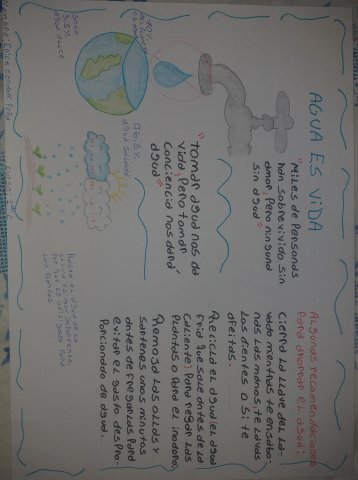 AGUA ES VIDA
"Miles de personas
han sobrevivido sin
amor, Pero ninguna
sin agua"
"tomar agua nos da
vida, Pero tomar
Conciencia nos dara
agua"
70%
96,5%
agua salada
Solo
3,5%
agua dulce
Algunas recomendaciones
Para ahorrar el agua:
Cierra la llave del la-
vabo mientras te enjabo-
nas las manos, te lavas
los dientes o si te
afeitas.
Recicla el agua (el agua
fria que sale antes de la
caliente) Para regar las
Plantas o Para el inodoro,
Remoja las ollas y
sartenes unos minutos
antes de fregarlas Para
evitar el gasto despro-
Porcionado de agua.